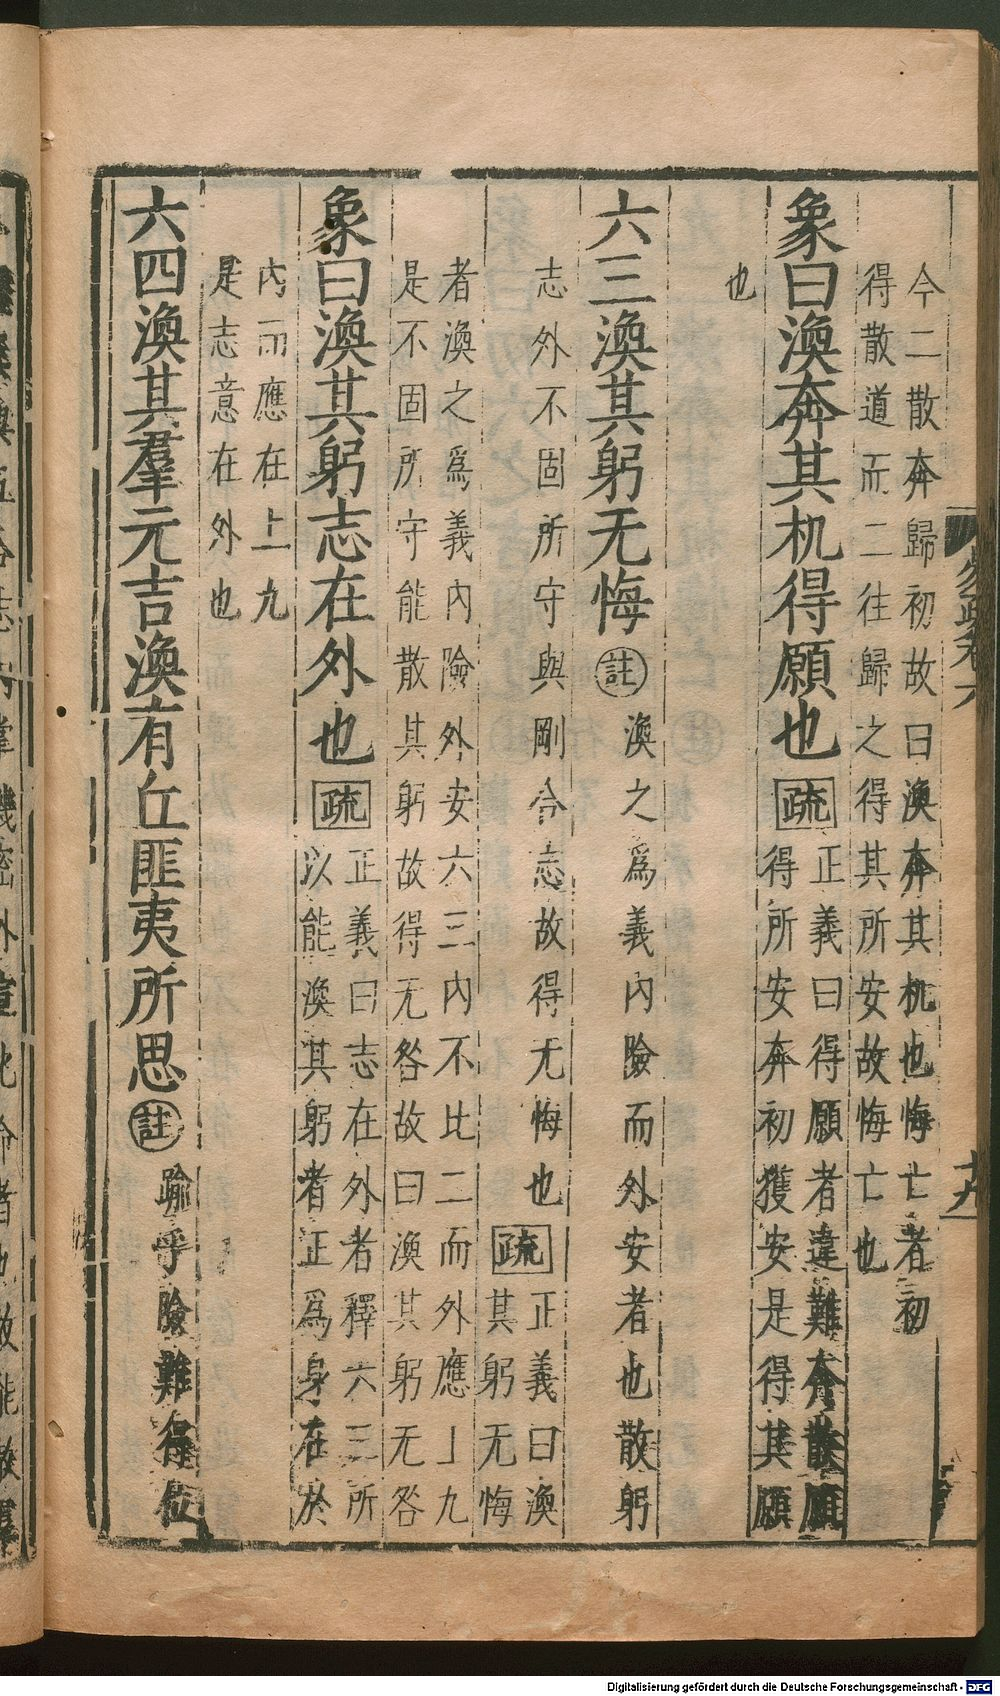 易疏卷六
十九
今二散奔歸初故曰渙奔其机也悔亡者初
得散道而二往歸之得其所安故悔亡也
象曰渙奔其机得願也 疏 正義曰得願者違難奔散願
得所安奔初獲安是得其願
也
六三渙其躬无悔 註 渙之爲義內險而外安者也散躬
志外不固所守與剛合志故得无悔也 疏 正義曰渙
其躬无悔
者渙之爲義內險外安六三內不比二而外應上九
是不固所守能散其躬故得无咎故曰渙其躬无咎
象曰渙其躬志在外也 疏 正義曰志在外者釋六三所
以能渙其躬者正爲身在於
內而應在上九
是志意在外也
六四渙其羣元吉渙有丘匪夷所思 註 踰乎險難得位
體巽與五合志內掌機密外宣化命者也故能散羣
Digitalisierung gefördert durch die Deutsche Forschungsgemeinschaft - DFG